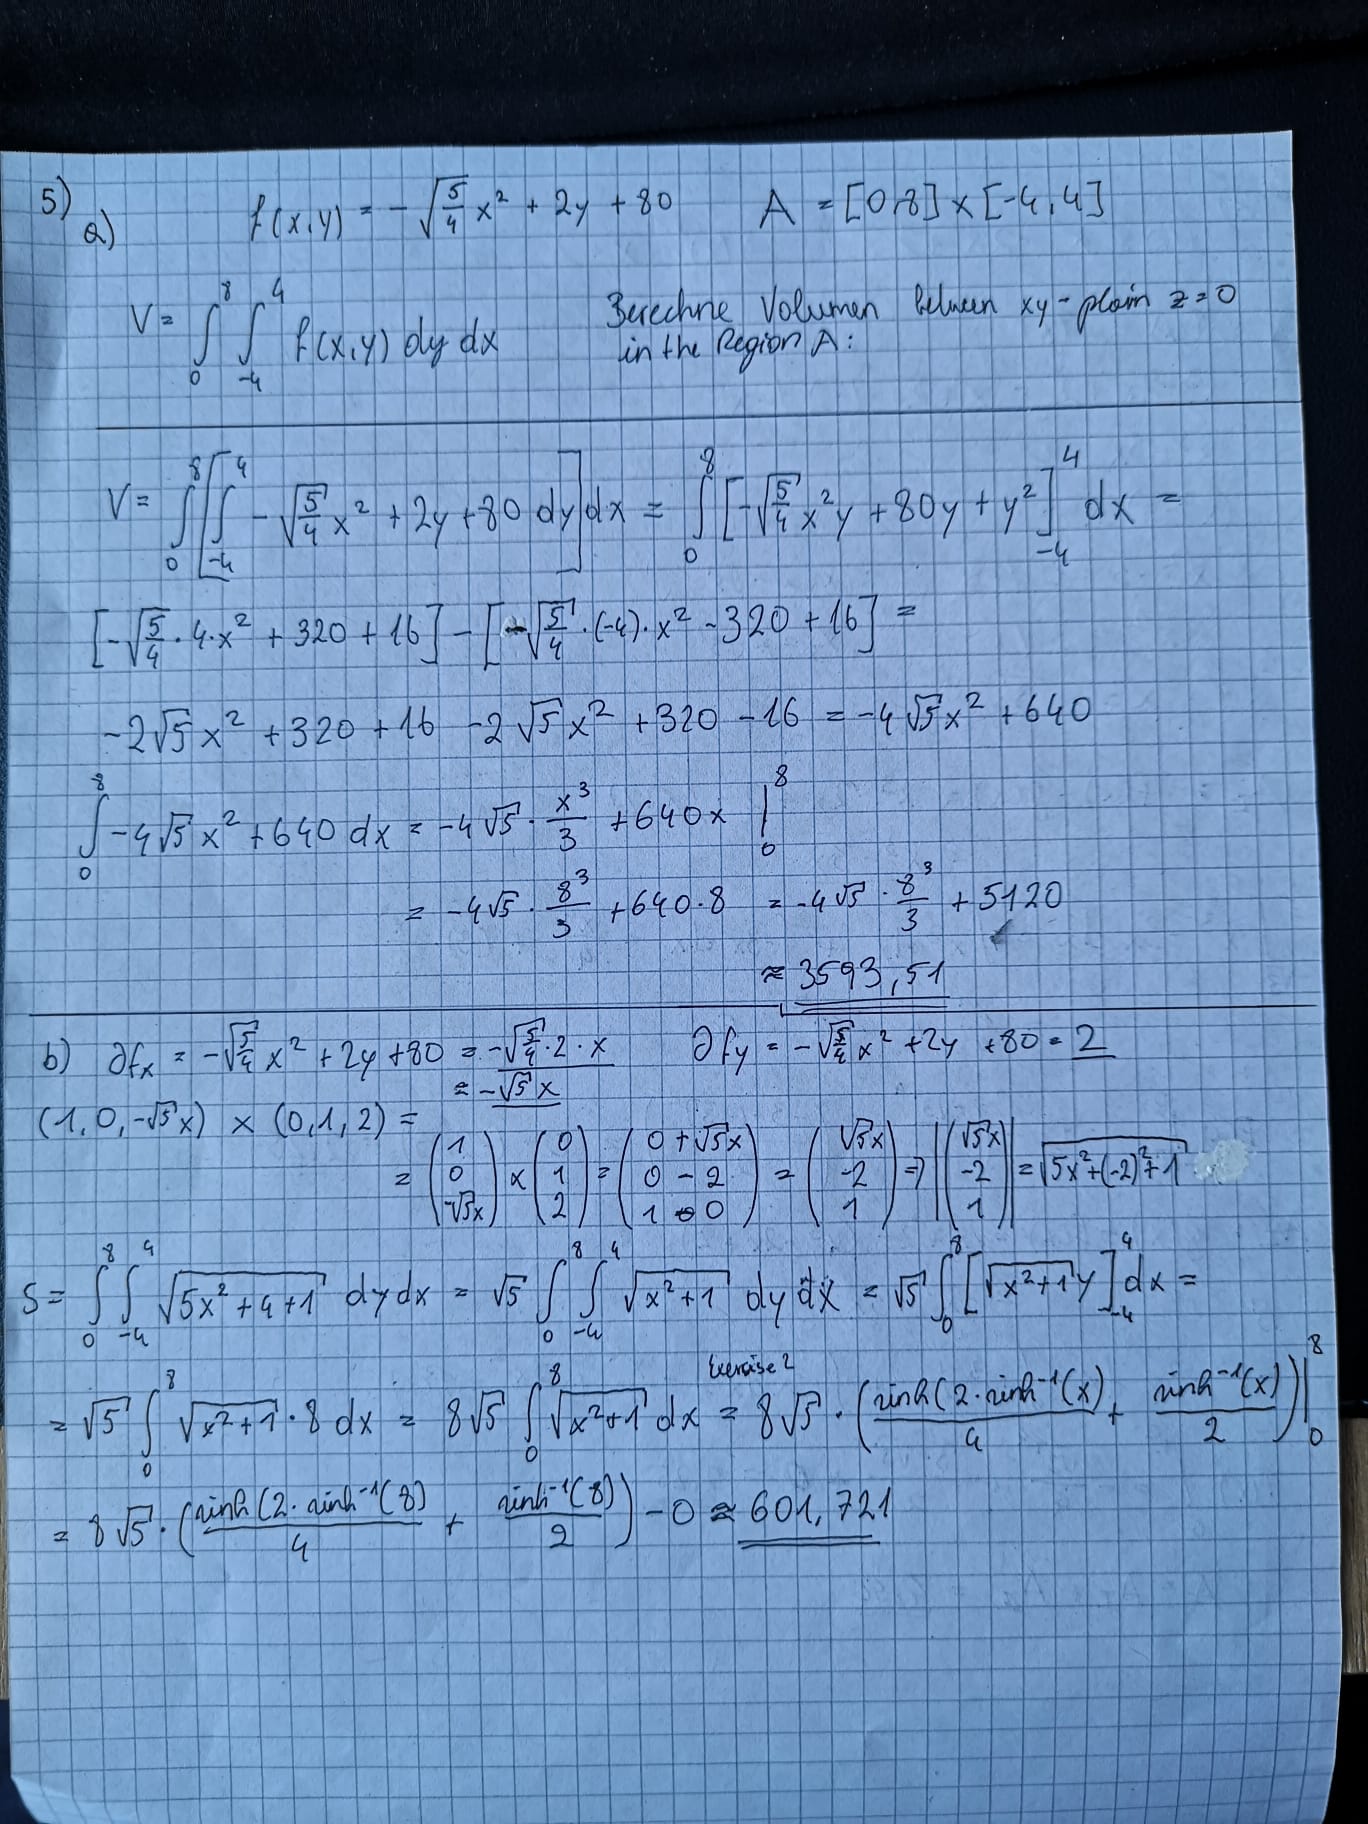 5)
a) f(x,y) = -√(5/4) x² + 2y + 80 A = [0,8] × [-4,4]
V = ∫₀⁸ ∫₋₄⁴ f(x,y) dy dx Berechne Volumen between xy-plain z=0
in the Region A:
V = ∫₀⁸ [∫₋₄⁴ -√(5/4) x² + 2y + 80 dy] dx = ∫₀⁸ [-√(5/4) x²y + 80y + y²]₋₄⁴ dx =
[-√(5/4) · 4 · x² + 320 + 16] - [-√(5/4) · (-4) · x² - 320 + 16] =
-2√5 x² + 320 + 16 -2√5 x² + 320 - 16 = -4√5 x² + 640
∫₀⁸ -4√5 x² + 640 dx = -4√5 · x³/3 + 640x |₀⁸
= -4√5 · 8³/3 + 640·8 = -4√5 · 8³/3 + 5120
≈ 3593,51
b) ∂fx = -√(5/4) x² + 2y + 80 = -√(5/4) · 2 · x ∂fy = -√(5/4) x² + 2y + 80 = 2
= -√5 x
(1, 0, -√5x) × (0, 1, 2) =
= (1 0 -√5x) × (0 1 2) = (0 + √5x 0 - 2 1 - 0) = (√5x -2 1) => |(√5x -2 1)| = √(5x² + (-2)² + 1)
S = ∫₀⁸ ∫₋₄⁴ √(5x² + 4 + 1) dy dx = √5 ∫₀⁸ ∫₋₄⁴ √(x² + 1) dy dx = √5 ∫₀⁸ [√(x² + 1) y]₋₄⁴ dx =
Exercise 2
= √5 ∫₀⁸ √(x² + 1) · 8 dx = 8√5 ∫₀⁸ √(x² + 1) dx = 8√5 · (sinh(2·sinh⁻¹(x)/4 + sinh⁻¹(x)/2)|₀⁸
= 8√5 · (sinh(2·sinh⁻¹(8)/4 + sinh⁻¹(8)/2) - 0 ≈ 601,721